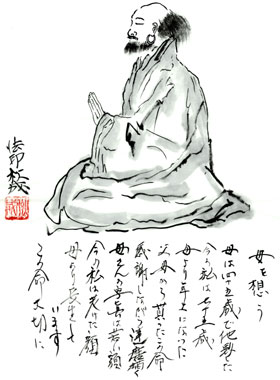 母を想う
母は四十五歳で他界した
今の私は七十五歳
母より年上になった
父母から頂いたこの命
感謝しながら達磨描く
母さんの写真は若い顔
今の私は老けた顔
母より長生きして
います
この命大切に
法印